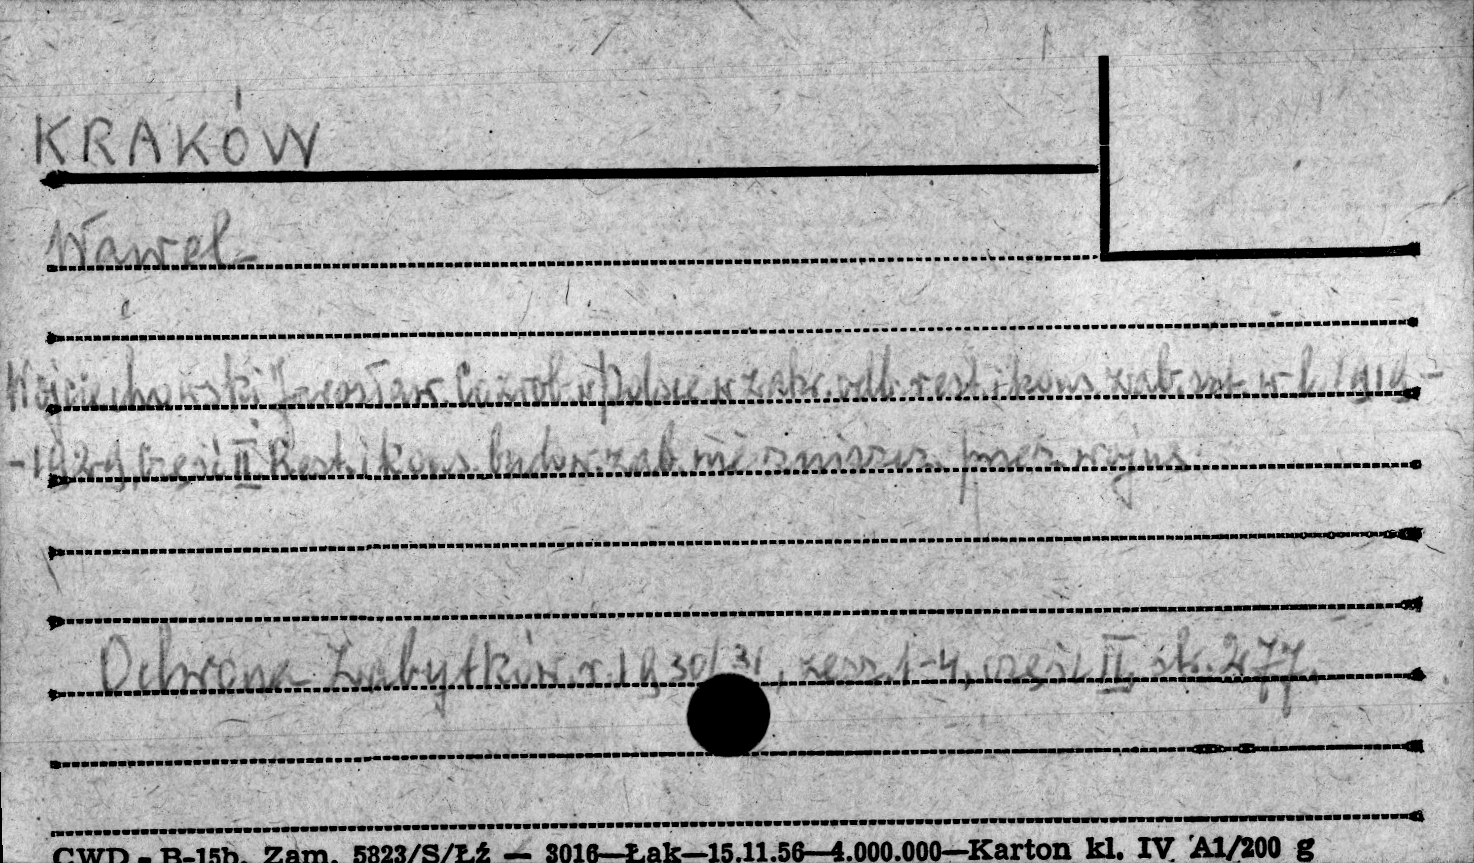 KRAKÓW
Wawel
Wojciechowski Jarosław. Co zrob. w Polsce w zakr. odb. rest. i kons. zab. szt. w l. 1919-
-1929, część II Rest. i kons. budow. zab. nie zniszcz. przez wojnę
Ochrona Zabytków r. 1930/31, zesz. 1-4, część II, str. 277.
CWD - B-15b. Zam. 5823/S/Łź — 3016—Łak—15.11.56—4.000.000—Karton kl. IV A1/200 g